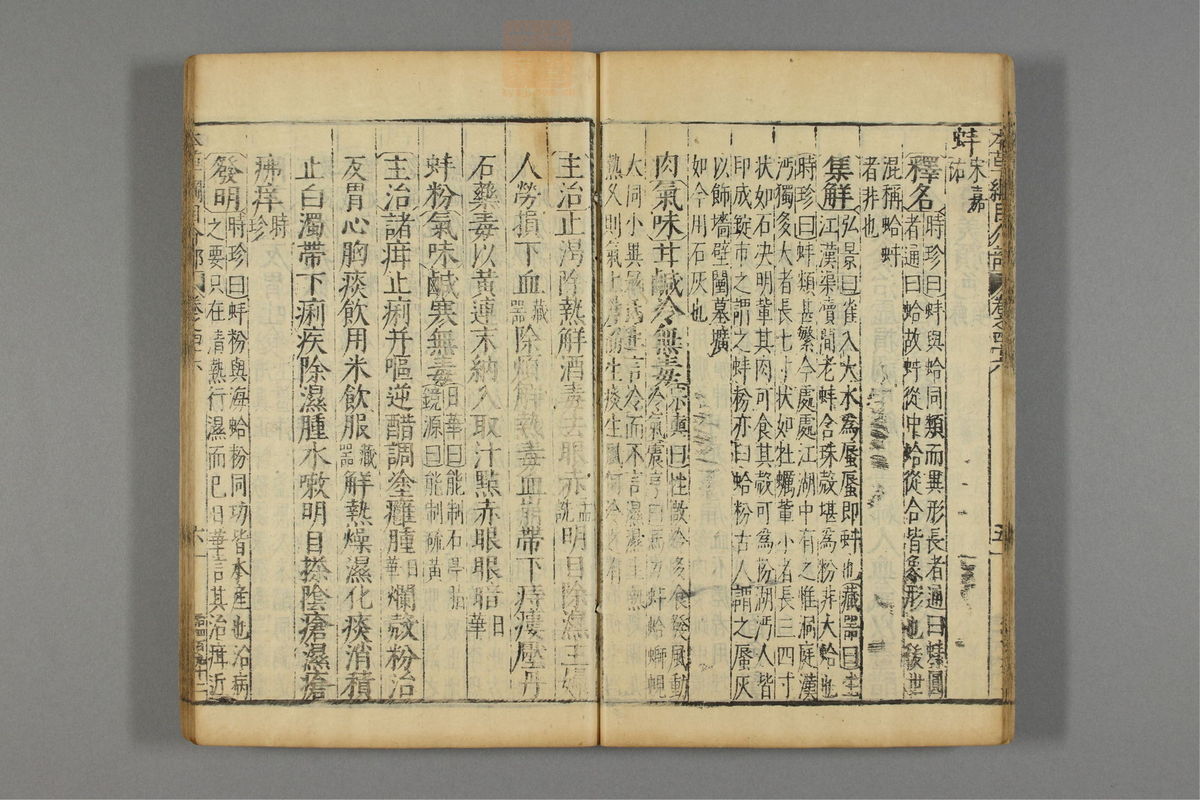 蚌
宋嘉
祐
釋名
時珍曰蚌與蛤同類而異形長者通曰蚌圓
者通曰蛤故蚌從中蛤從合皆象形也後世
混稱蛤蚌
者非也
集解
弘景曰雀入大水為蜃蜃即蚌也藏器曰生
江漢渠瀆間老蚌含珠殼堪為粉非大蛤也
時珍曰蚌類甚繁今處處江湖中有之惟洞庭漢
沔獨多大者長七寸狀如牡蠣輩小者長三四寸
狀如石决明輩其肉可食其殼可為粉湖沔人皆
印成錠市之謂之蚌粉亦曰蛤粉古人謂之蜃灰
以飾墻壁闉墓壙
如今用石灰也
肉氣味甘鹹冷無毒
宗奭曰性微冷多食發風動
冷氣震亨曰馬刀蚌蛤螄蜆
大同小異
言冷而不言濕濕
熱久則氣上
生痰生
主治止渴除熱解酒毒去眼赤
孟
詵
明目除濕主婦
人勞損下血
藏
器
除煩解熱毒血崩帶下痔瘻壓丹
石藥毒以黃連末納入取汁點赤眼眼暗
日
華
蚌粉氣味鹹寒無毒
日華曰能制石亭脂
鏡源曰能制硫黃
主治諸疳止痢并嘔逆醋調塗癰腫
日
華
爛殼粉治
反胃心胸痰飲用米飲服
藏
器
解熱燥濕化痰消積
止白濁帶下痢疾除濕腫水嗽明目搽陰瘡濕瘡
疿痒
時
珍
發明
時珍曰蚌粉與海蛤粉同功皆水產也治病
之要只在清熱行濕而已日華言其治疳近